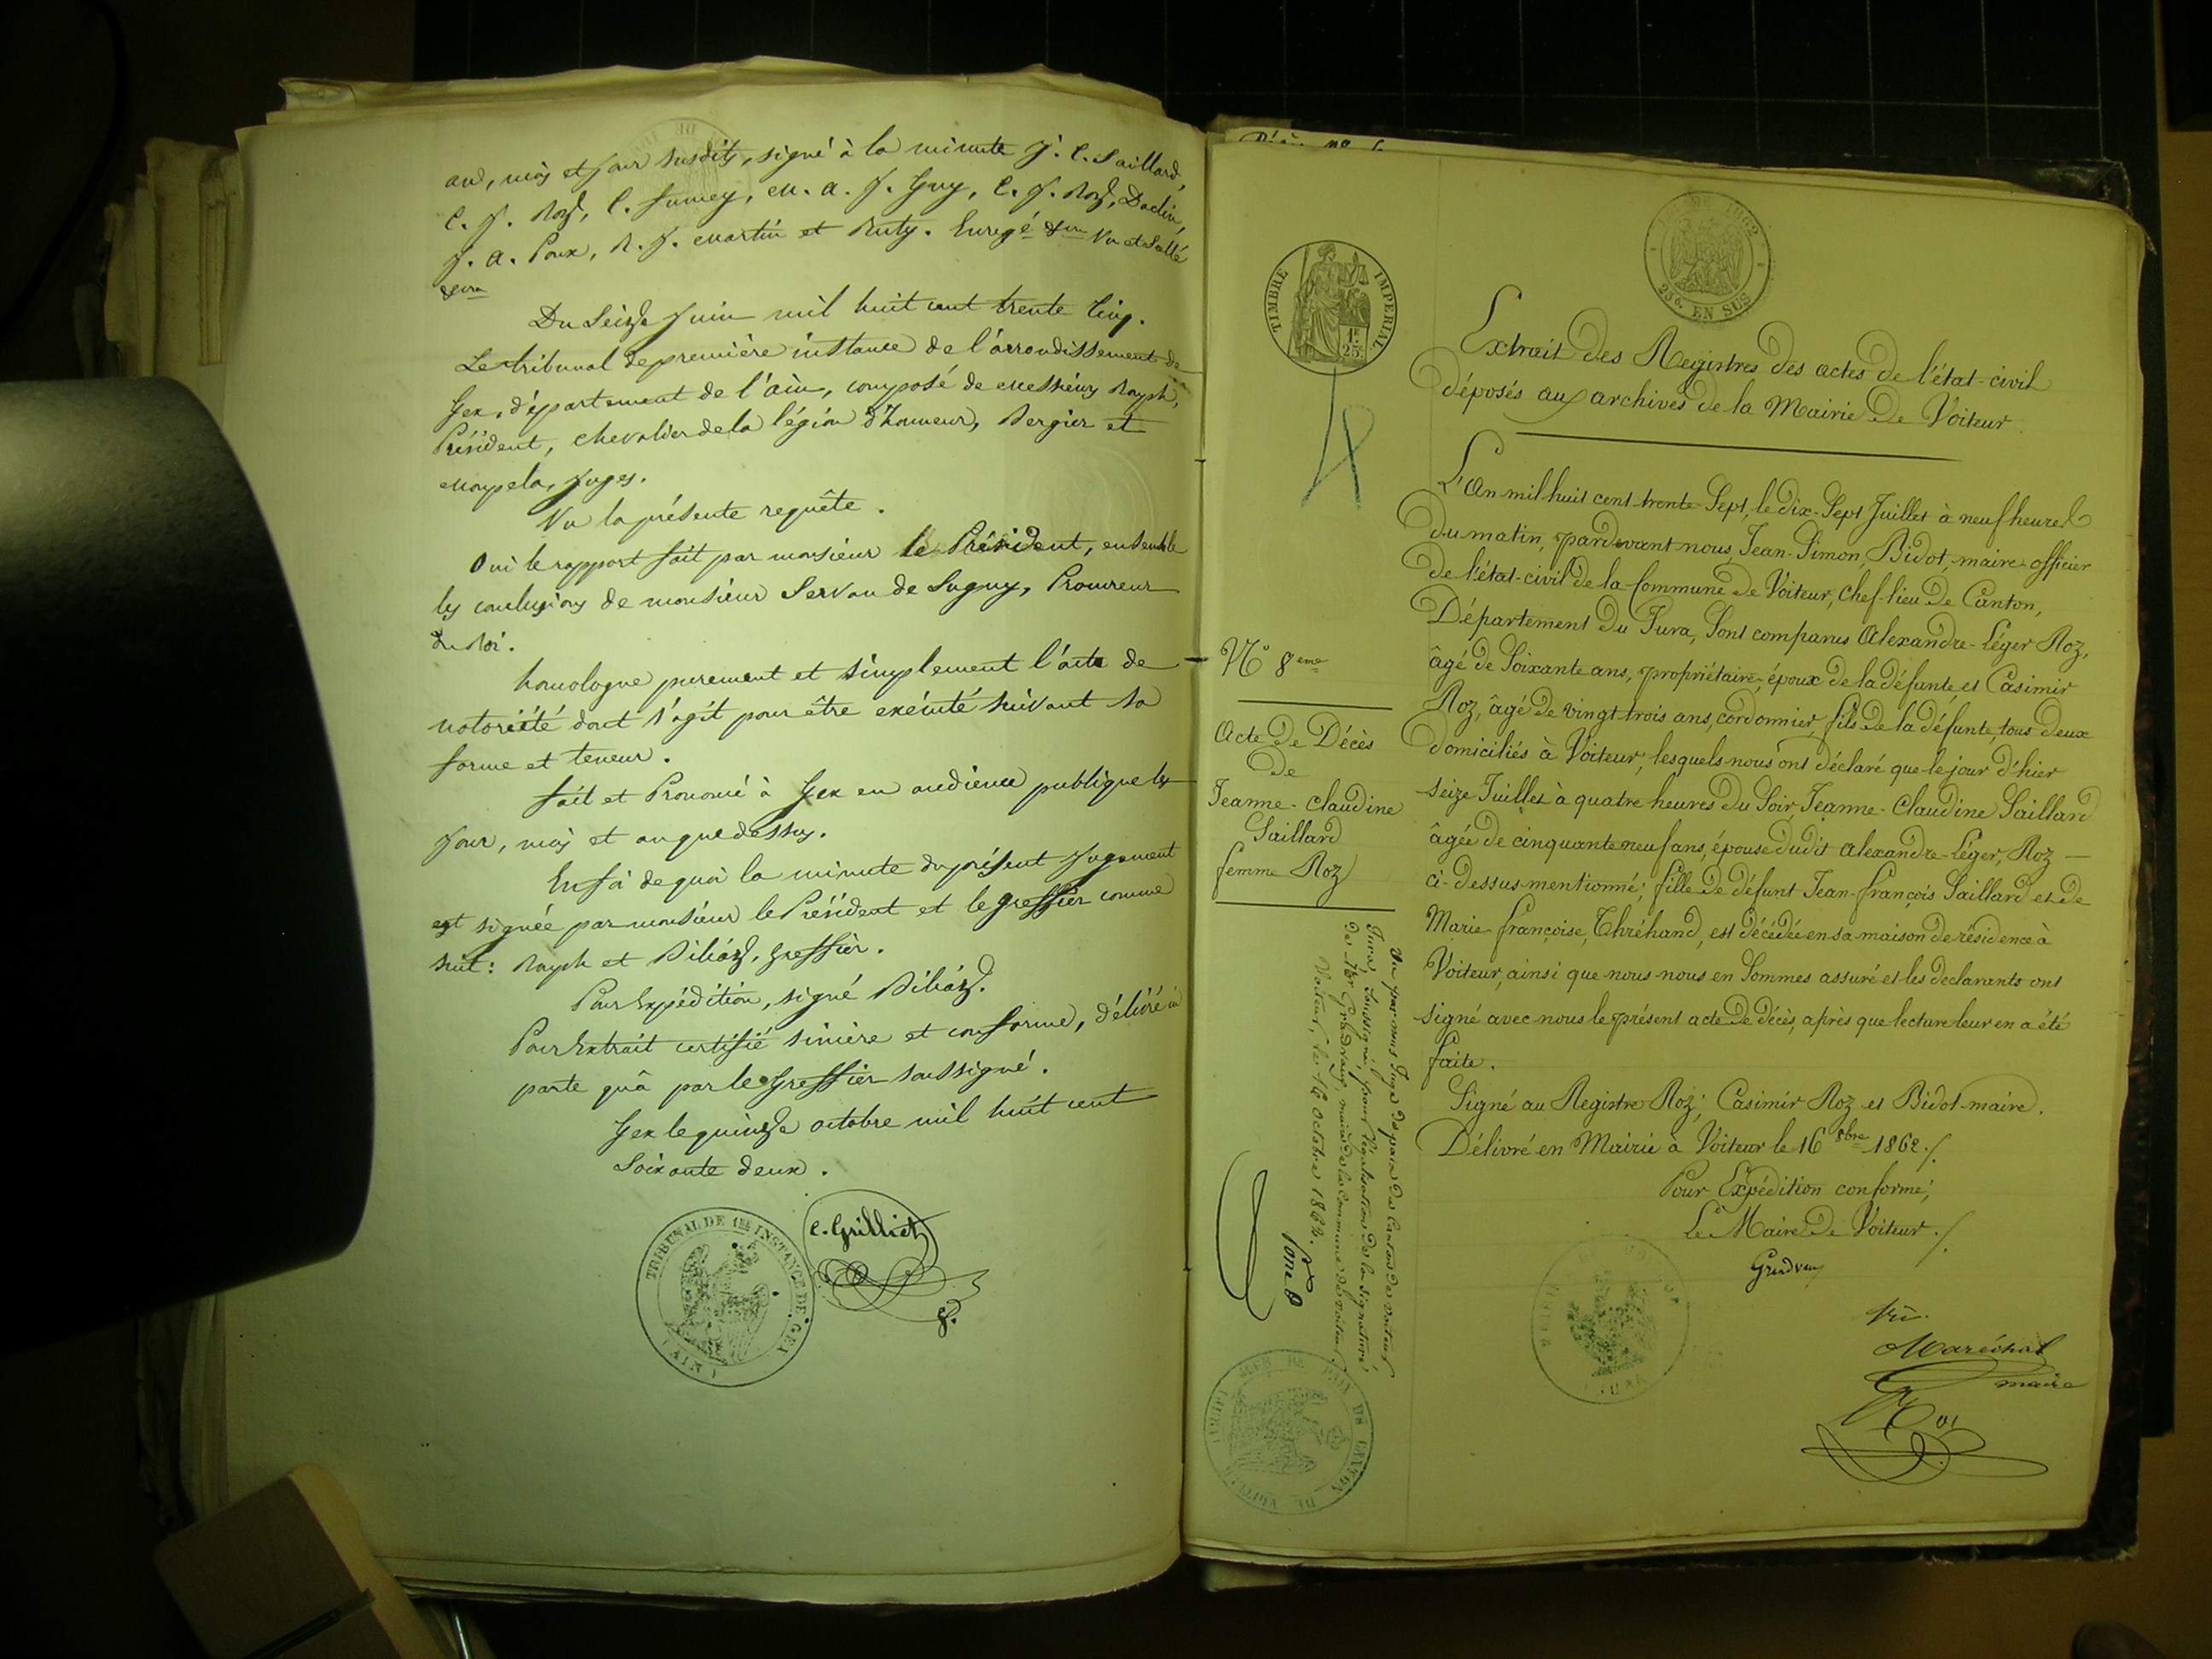 an, mois et jour susdits, signé à la minute J. C. Saillard,
C. J. Roz, C. Jumey, M. A. J. Guy, C. J. Roz, Daclin,
J. A. Poux, R. J. Martin et Ruty. Enregé Vu et Scellé
Du Seize Juin mil huit cent trente Cinq.
Le tribunal de première instance de l'arrondissement de
Gex, département de l'ain, composé de Messieurs Rayph,
Président, chevalier de la légion d'honneur, Bergier et
juges.
Vu la présente requête.
Oui le rapport fait par monsieur le Président, ensemble
les conclusions de monsieur Servan de Sugny, Procureur
du Roi.
homologue purement et simplement l'acte de
notoriété dont s'agit pour être exécuté suivant sa
forme et teneur.
fait et Prononcé à Gex en audience publique les
jour, mois et an que dessus.
En foi de quoi la minute du présent jugement
est signée par monsieur le Président et le greffier comme
suit: Rayph et greffier.
Pour Expédition, signé
Pour Extrait certifié sincère et conforme, délivré en
parte quâ par le Greffier soussigné.
Gex le quinze octobre mil huit cent
Soixante deux.
C. Grilliet
TRIBUNAL DE 1ERE INSTANCE DE GEX
(AIN)
Pièce no
2 EN SUS
TIMBRE IMPERIAL
1F.
25c.
Extrait des Registres des actes de l'état-civil
déposés aux archives de la Mairie de Voiteur
L'An mil huit cent trente-Sept, le dix-Sept Juillet à neuf heures
du matin, pardevant nous, Jean-Simon, Bidot, maire officier
de l'état-civil de la Commune de Voiteur, Chef-lieu de Canton,
Département du Jura, Sont comparus Alexandre-Léger Roz,
N° 8eme
âgé de Soixante ans, propriétaire, époux de la défunte, et Casimir
Roz, âgé de vingt trois ans, cordonnier, fils de la défunte, tous deux
domiciliés à Voiteur, lesquels nous ont déclaré que le jour d'hier
seize Juillet à quatre heures du Soir, Jeanne-Claudine Saillard
âgée de cinquante neuf ans, épouse dudit Alexandre-Léger, Roz
ci-dessus mentionné; fille de défunt Jean-françois Saillard et de
Marie françoise, Thréhand, est décédée en sa maison de résidence à
Voiteur, ainsi que nous nous en Sommes assuré et les declarants ont
signé avec nous le présent acte de décès, après que lecture leur en a été
faite.
Acte de Décès
de
Jeanne-Claudine
Saillard
femme Roz
Signé au Registre Roz; Casimir Roz et Bidot maire.
Délivré en Mairie à Voiteur le 16 8bre 1862./.
Pour Expédition conforme;
Le Maire de Voiteur./.
Vu par nous Juge de paix du Canton de Voiteur
Jura, soussigné, pour légalisation de la signature
de Mr maire de la Commune de Voiteur
Voiteur, le Octobre 1862.
JUGE DE PAIX DU CANTON DE VOITEUR
Vu.
Maréchal
maire